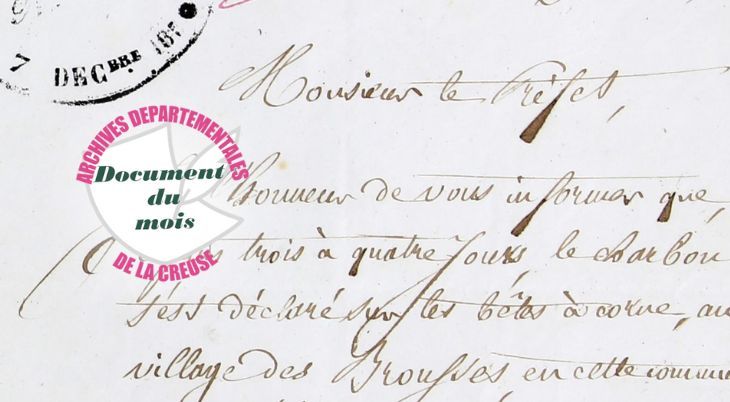 7 DECBRE 187
Monsieur le Préfet,
ARCHIVES DEPARTEMENTALES
Document
du
mois
DE LA CREUSE
honneur de vous informer que,
trois à quatre jours, le charbon
s'est déclaré sur les bêtes à corne, au
village des Brousses, en cette commun